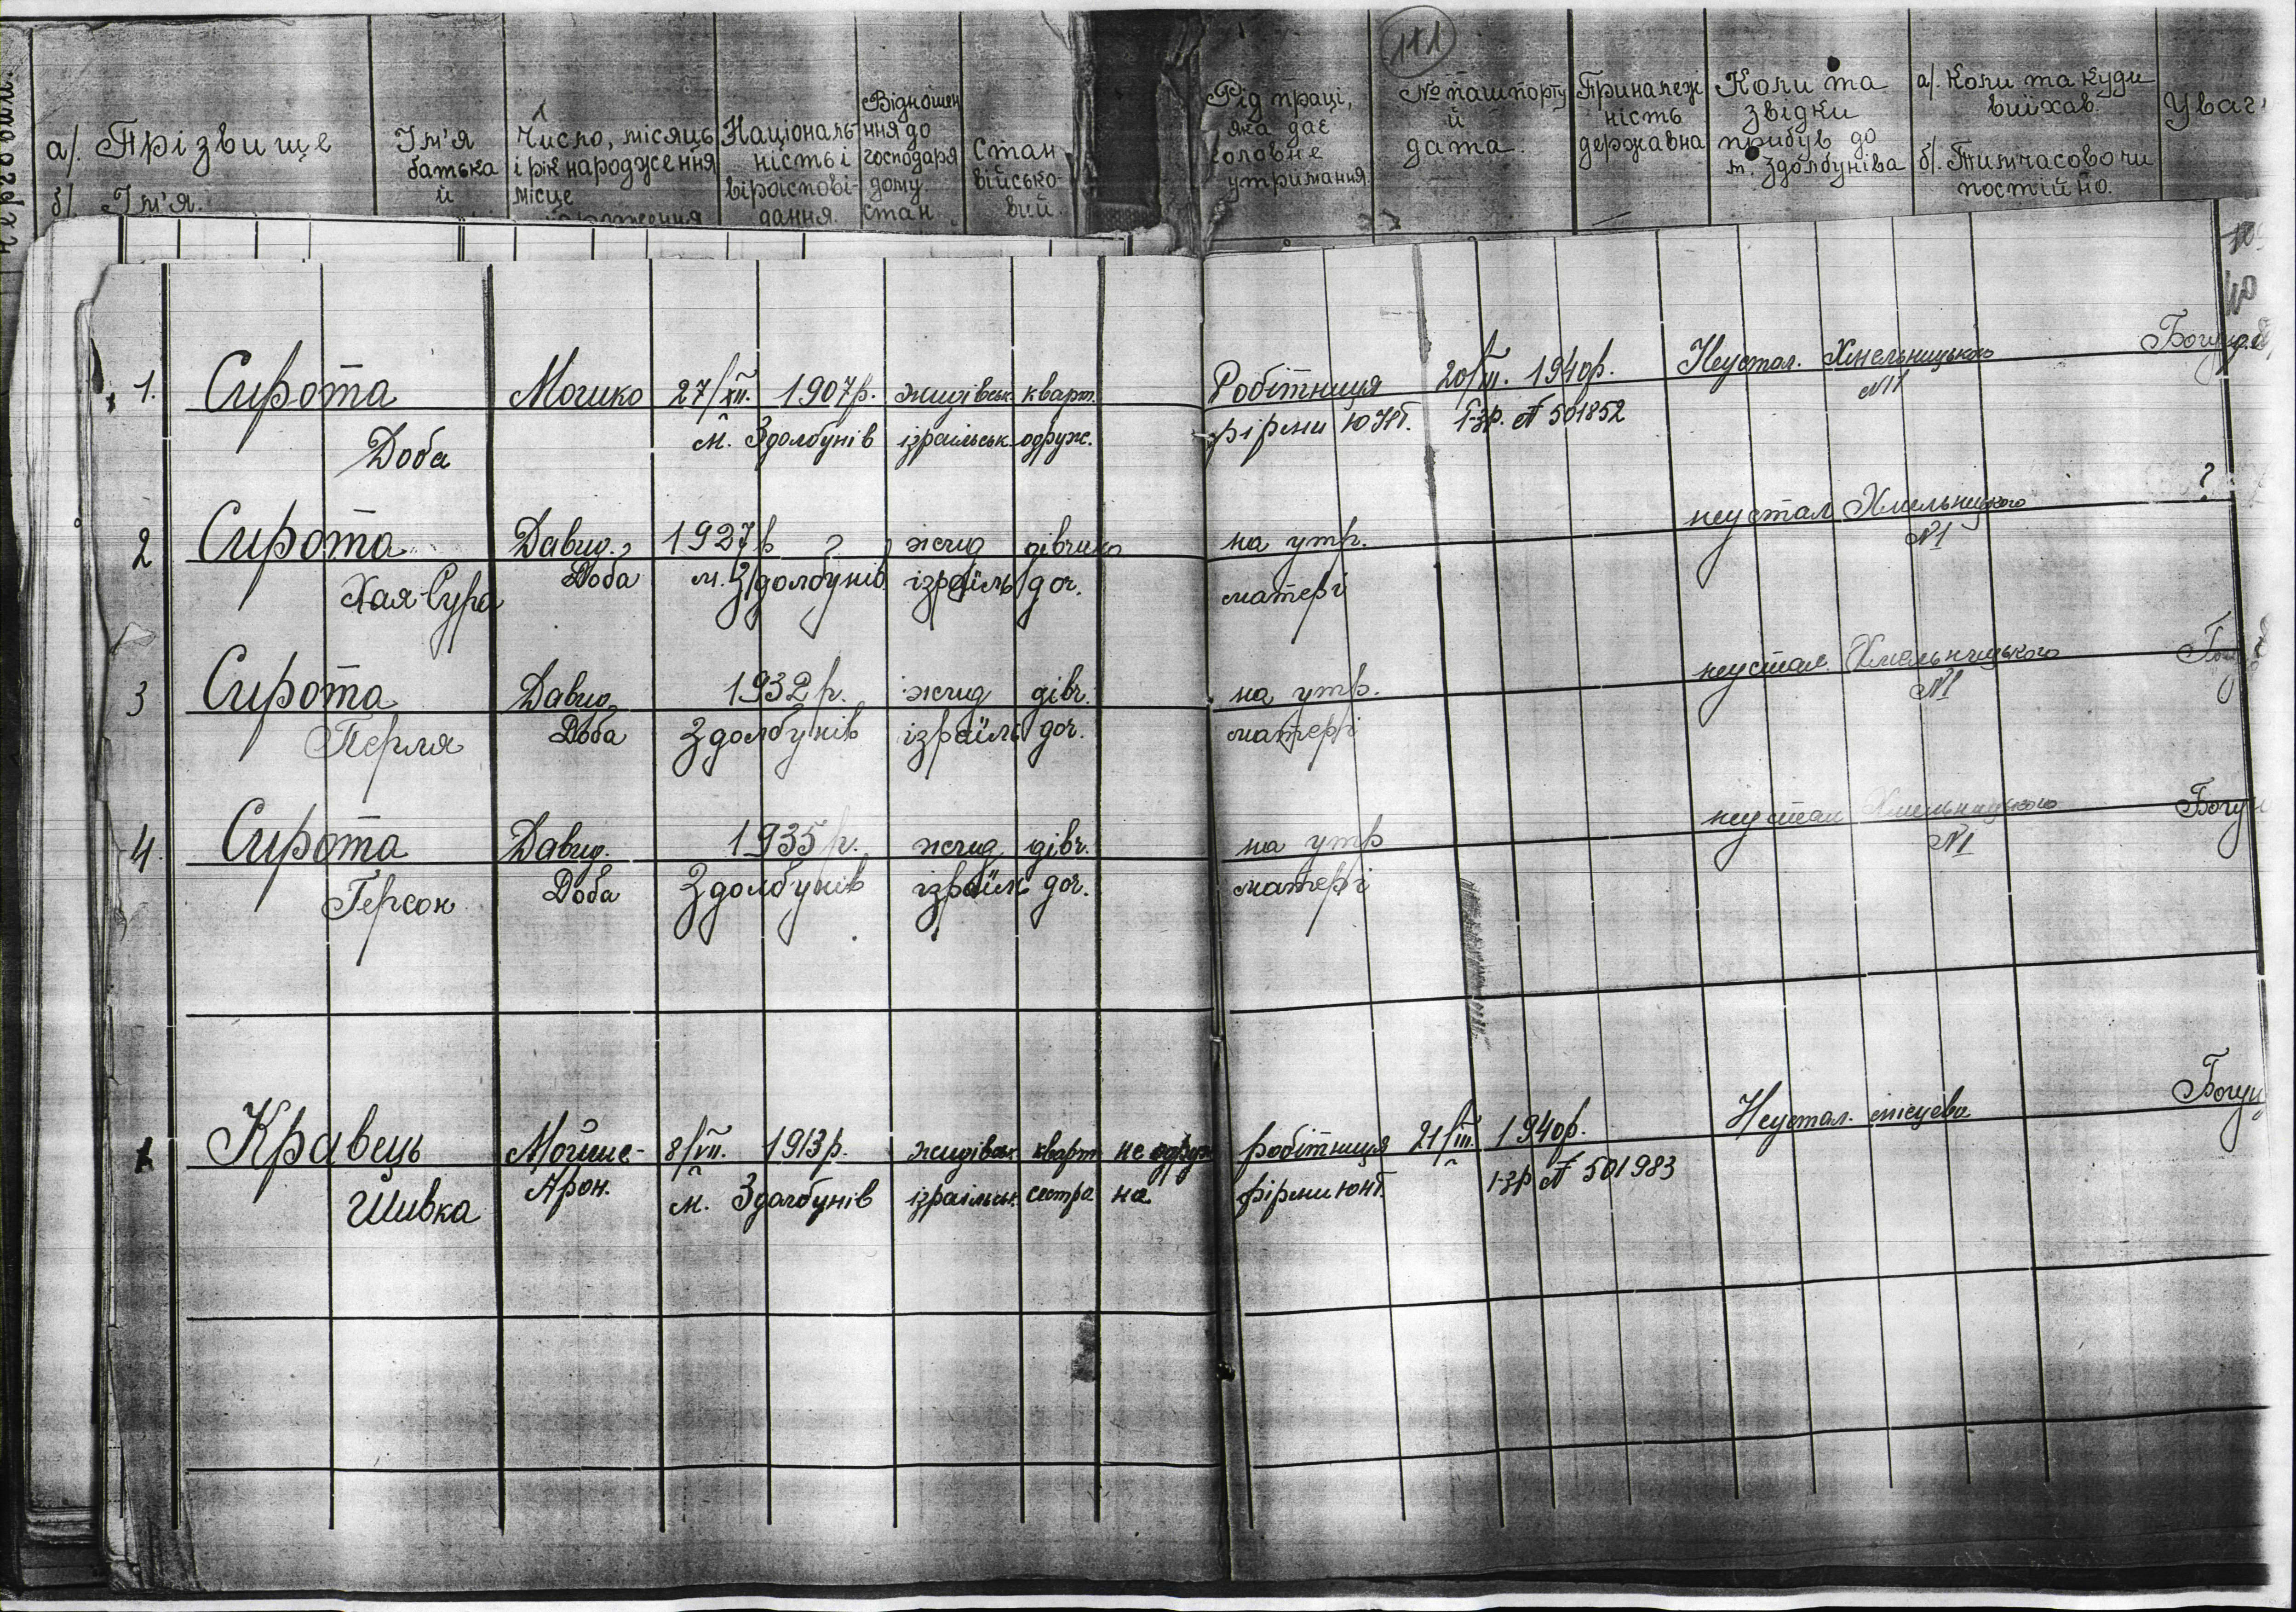 111
а/. Прізвище
б/. Ім'я.
Ім'я
батька
й
Число, місяць
і рік народження
місце
Національ-
ність і
віроіспові-
дання.
Відношен
ння до
господаря
дому.
стан.
Стан
військо-
вий.
Рід праці,
яка дає
головне
утримання.
№ пашпорту
й
дата.
Приналеж
ність
державна
Коли та
звідки
прибув до
м. Здолбуніва
а/. Коли та куди
виїхав.
б/. Тимчасово чи
постійно.
Уваг
1. Сирота Мошко 27/XII. 1907р. жидівськ. кварт. Робітниця 20/III. 1940р. Неустал. Хмельницького
Доба м. Здолбунів ізраільськ. одруж. фірми ЮНГ. І-зр. № 501852 №1
2 Сирота Давид. 1927р ? жид дівчина на утр. неустал Хмельницкого ?
Хая-Сура Доба м. Здолбунів. ізраїль доч. матері №1
3 Сирота Давид 1932р. жид дівч. на утр. неустал. Хмельницького
Перля Доба Здолбунів ізраїль доч. матері №1
4. Сирота Давид. 1935р. жид дівч. на утр неустал Хмельницького
Герсон Доба Здолбунів ізраїль доч. матері №1
1 Кравець Мойше- 8/VII. 1913р. жидівськ кварт не одруж робітниця 21/III. 1940р. Неустал. місцева
Шивка Арон. м. Здолбунів ізраільськ. сестра на фірми ЮНГ. І-зр № 501983